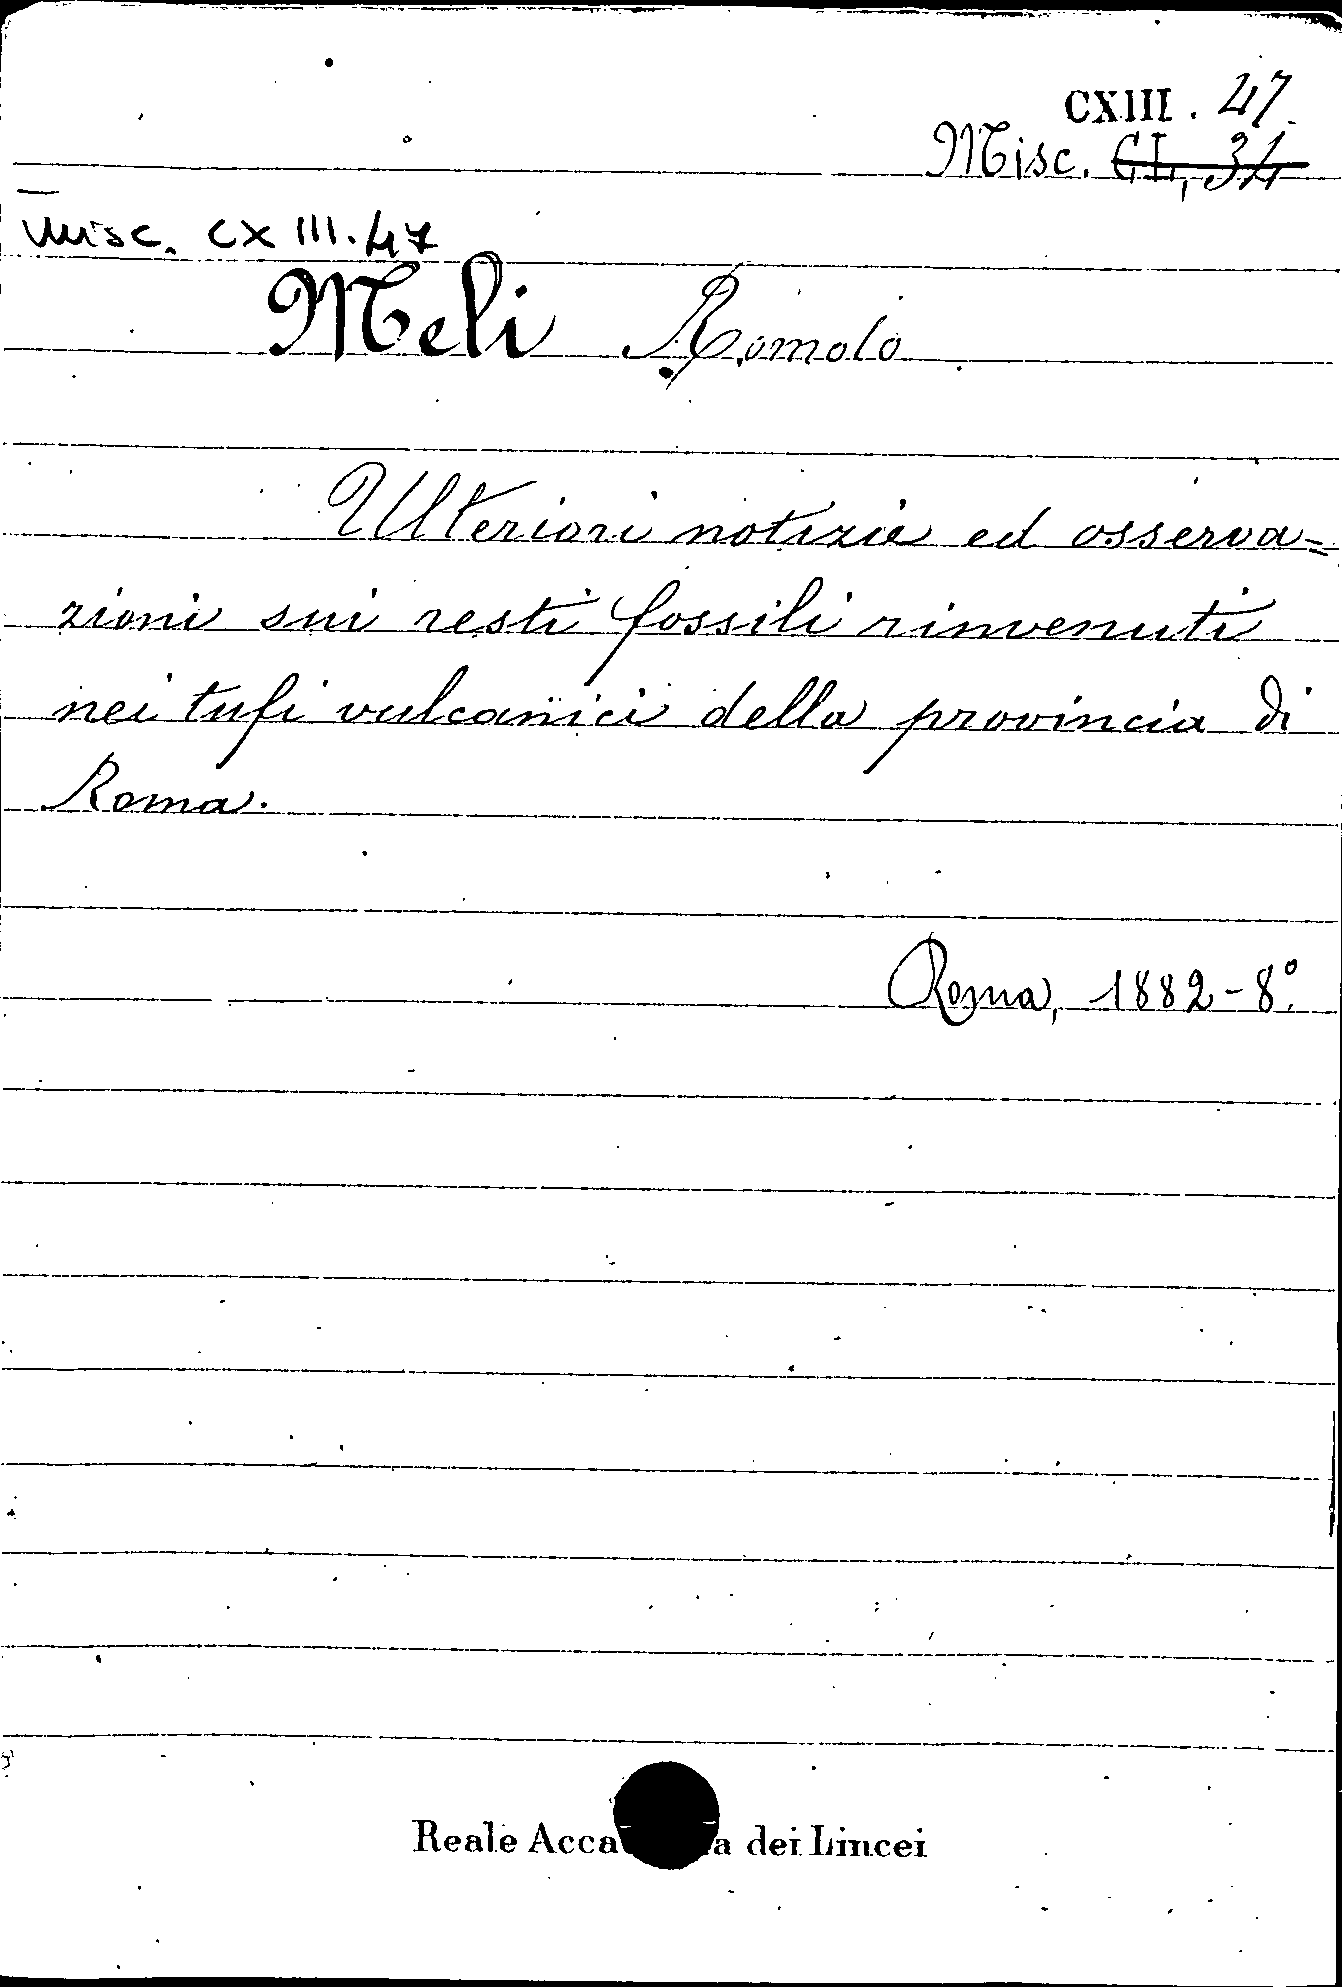 CXIII. 47.
Misc. CL, 34
Misc. CXIII.47
Meli Romolo
Ulteriori notizie ed osserva=
zioni sui resti fossili rinvenuti
nei tufi vulcanici della provincia di
Roma.
Roma, 1882-8.º
Reale Acca a dei Lincei